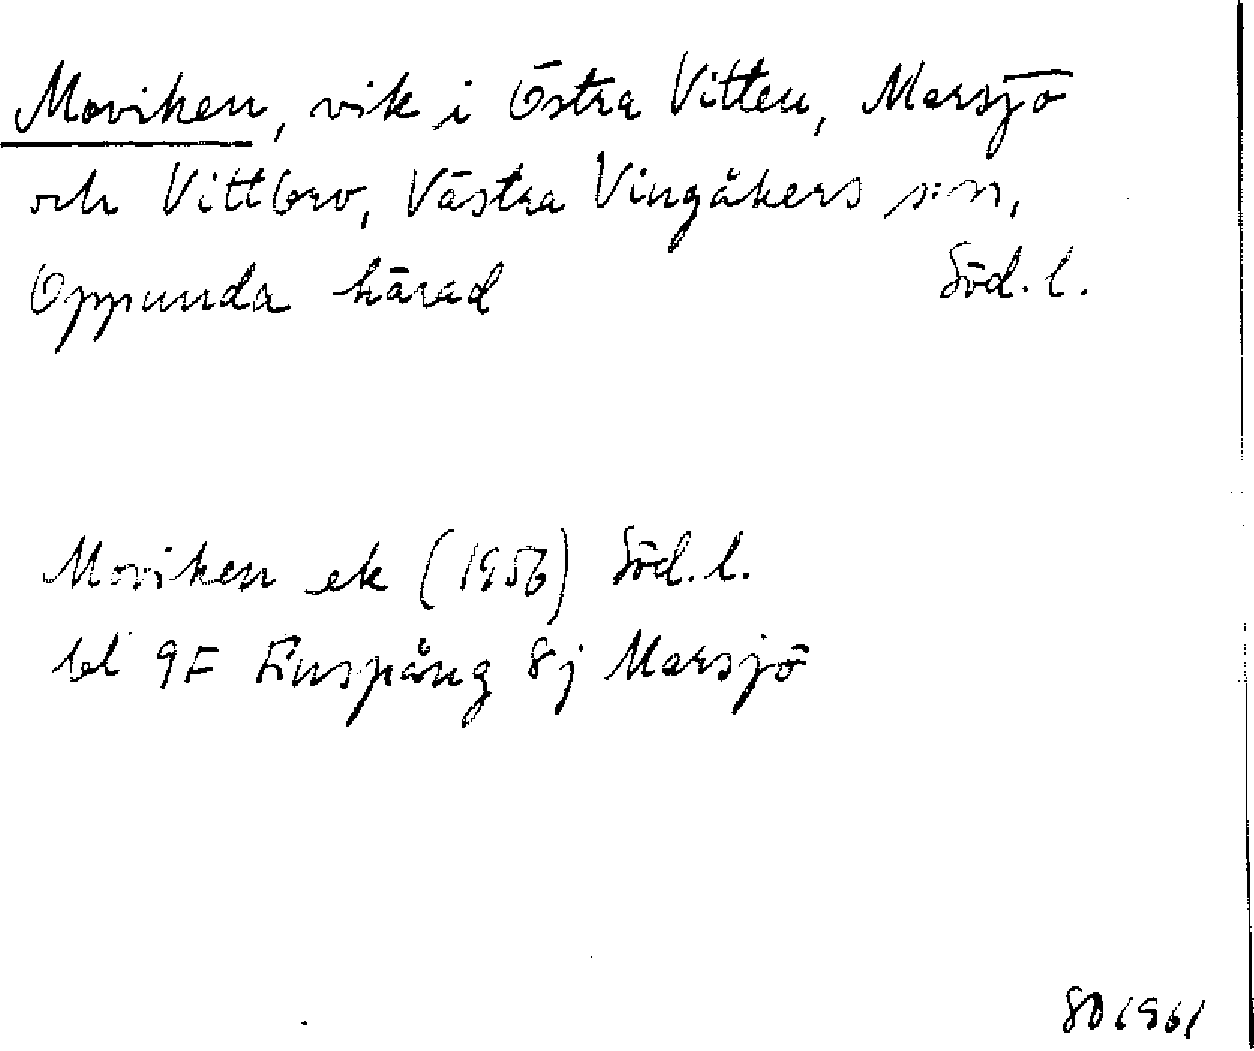 Moviken, vik i Östra Vitten, Marsjö
och Vittbro, Västra Vingåkers s:n,
Oppunda härad Söd. l.
Moviken ek (1956) Söd. l.
bl 9F Finspång 8j Marsjö